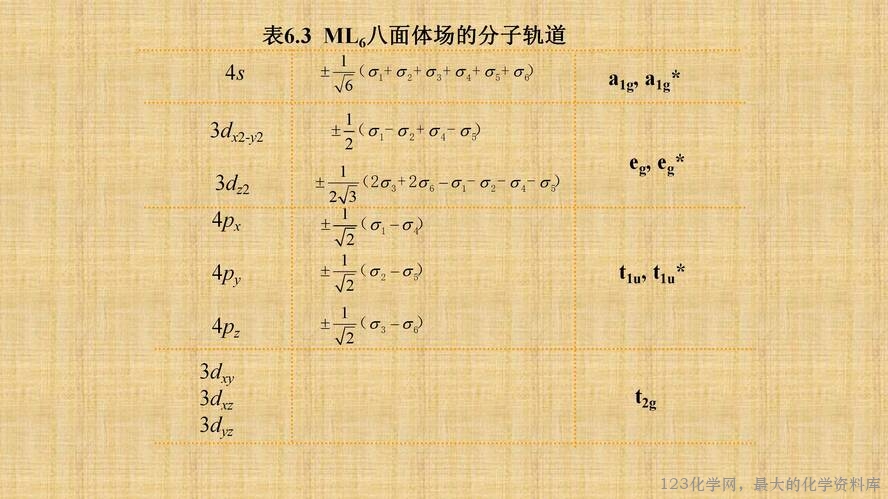 表6.3 ML₆八面体场的分子轨道
4s ±1/√6(σ₁+σ₂+σ₃+σ₄+σ₅+σ₆) a₁g, a₁g*
3dx2-y2 ±1/2(σ₁-σ₂+σ₄-σ₅)
eg, eg*
3dz2 ±1/2√3(2σ₃+2σ₆-σ₁-σ₂-σ₄-σ₅)
4px ±1/√2(σ₁-σ₄)
4py ±1/√2(σ₂-σ₅) t₁u, t₁u*
4pz ±1/√2(σ₃-σ₆)
3dxy
3dxz t₂g
3dyz
123化学网，最大的化学资料库